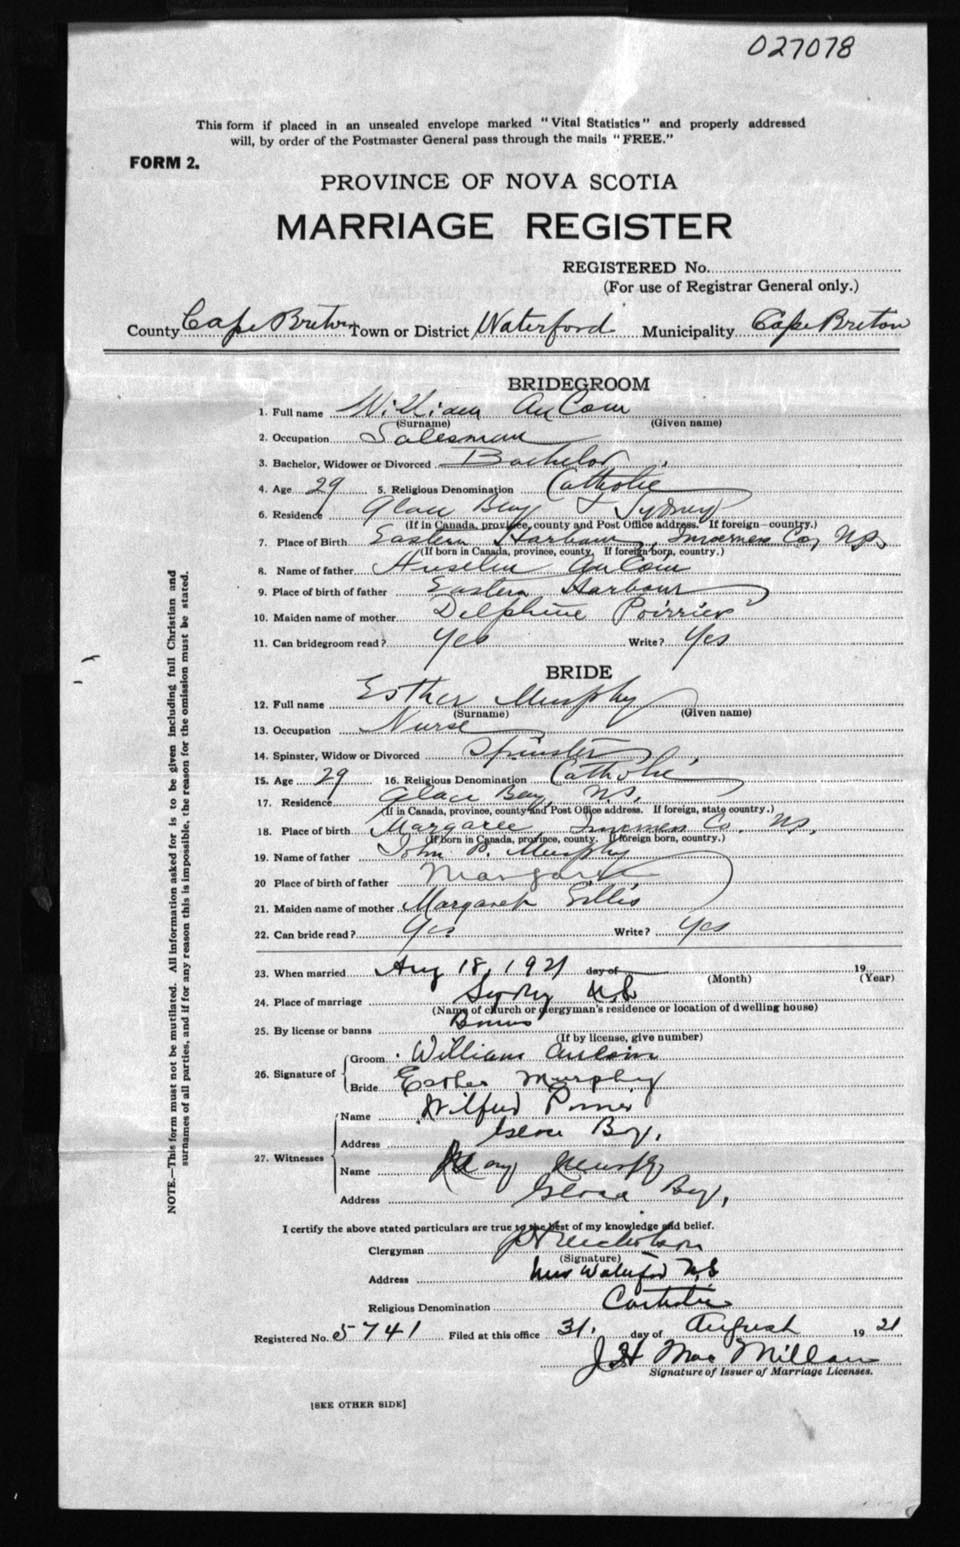 027078
This form if placed in an unsealed envelope marked "Vital Statistics" and properly addressed
will, by order of the Postmaster General pass through the mails "FREE."
FORM 2.
PROVINCE OF NOVA SCOTIA
MARRIAGE REGISTER
REGISTERED No.
(For use of Registrar General only.)
County Cape Breton Town or District Waterford Municipality Cape Breton
BRIDEGROOM
1. Full name William AuCoin
(Surname) (Given name)
2. Occupation Salesman
3. Bachelor, Widower or Divorced Bachelor
4. Age 29 5. Religious Denomination Catholic
6. Residence Glace Bay & Sydney
(If in Canada, province, county and Post Office address. If foreign—country.)
7. Place of Birth Eastern Harbour, Inverness Co, N.S.
(If born in Canada, province, county. If foreign born, country.)
8. Name of father Anselm AuCoin
9. Place of birth of father Eastern Harbour
10. Maiden name of mother Delphine Poirrier
11. Can bridegroom read? Yes Write? Yes
BRIDE
12. Full name Esther Murphy
(Surname) (Given name)
13. Occupation Nurse
14. Spinster, Widow or Divorced Spinster
15. Age 29 16. Religious Denomination Catholic
17. Residence Glace Bay, N.S.
(If in Canada, province, county and Post Office address. If foreign, state country.)
18. Place of birth Margaree Inverness Co. N.S.
(If born in Canada, province, county. If foreign born, country.)
19. Name of father John P. Murphy
20 Place of birth of father Margaree
21. Maiden name of mother Margaret Gillis
22. Can bride read? Yes Write? Yes
23. When married Aug 18, 1921 day of 19
(Month) (Year)
24. Place of marriage Sydney N.S.
(Name of church or clergyman's residence or location of dwelling house)
25. By license or banns Banns
(If by license, give number)
26. Signature of Groom William Aucoin
Bride Esther Murphy
27. Witnesses Name Wilfred Poirier
Address Glace Bay,
Name May Murphy
Address Glace Bay,
I certify the above stated particulars are true to the best of my knowledge and belief.
Clergyman Nicholson
(Signature)
Address New Waterford N.S
Religious Denomination Catholic
Registered No. 5741 Filed at this office 31. day of August 19 21
J H MacMillan
Signature of Issuer of Marriage Licenses.
[SEE OTHER SIDE]
NOTE.—This form must not be mutilated. All information asked for is to be given including full Christian and
surnames of all parties, and if for any reason this is impossible, the reason for the omission must be stated.